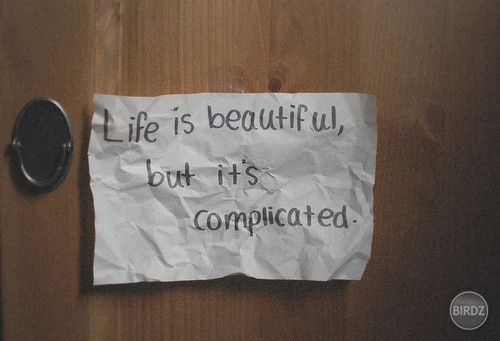 Life is beautiful,
but it's
complicated.
BIRDZ